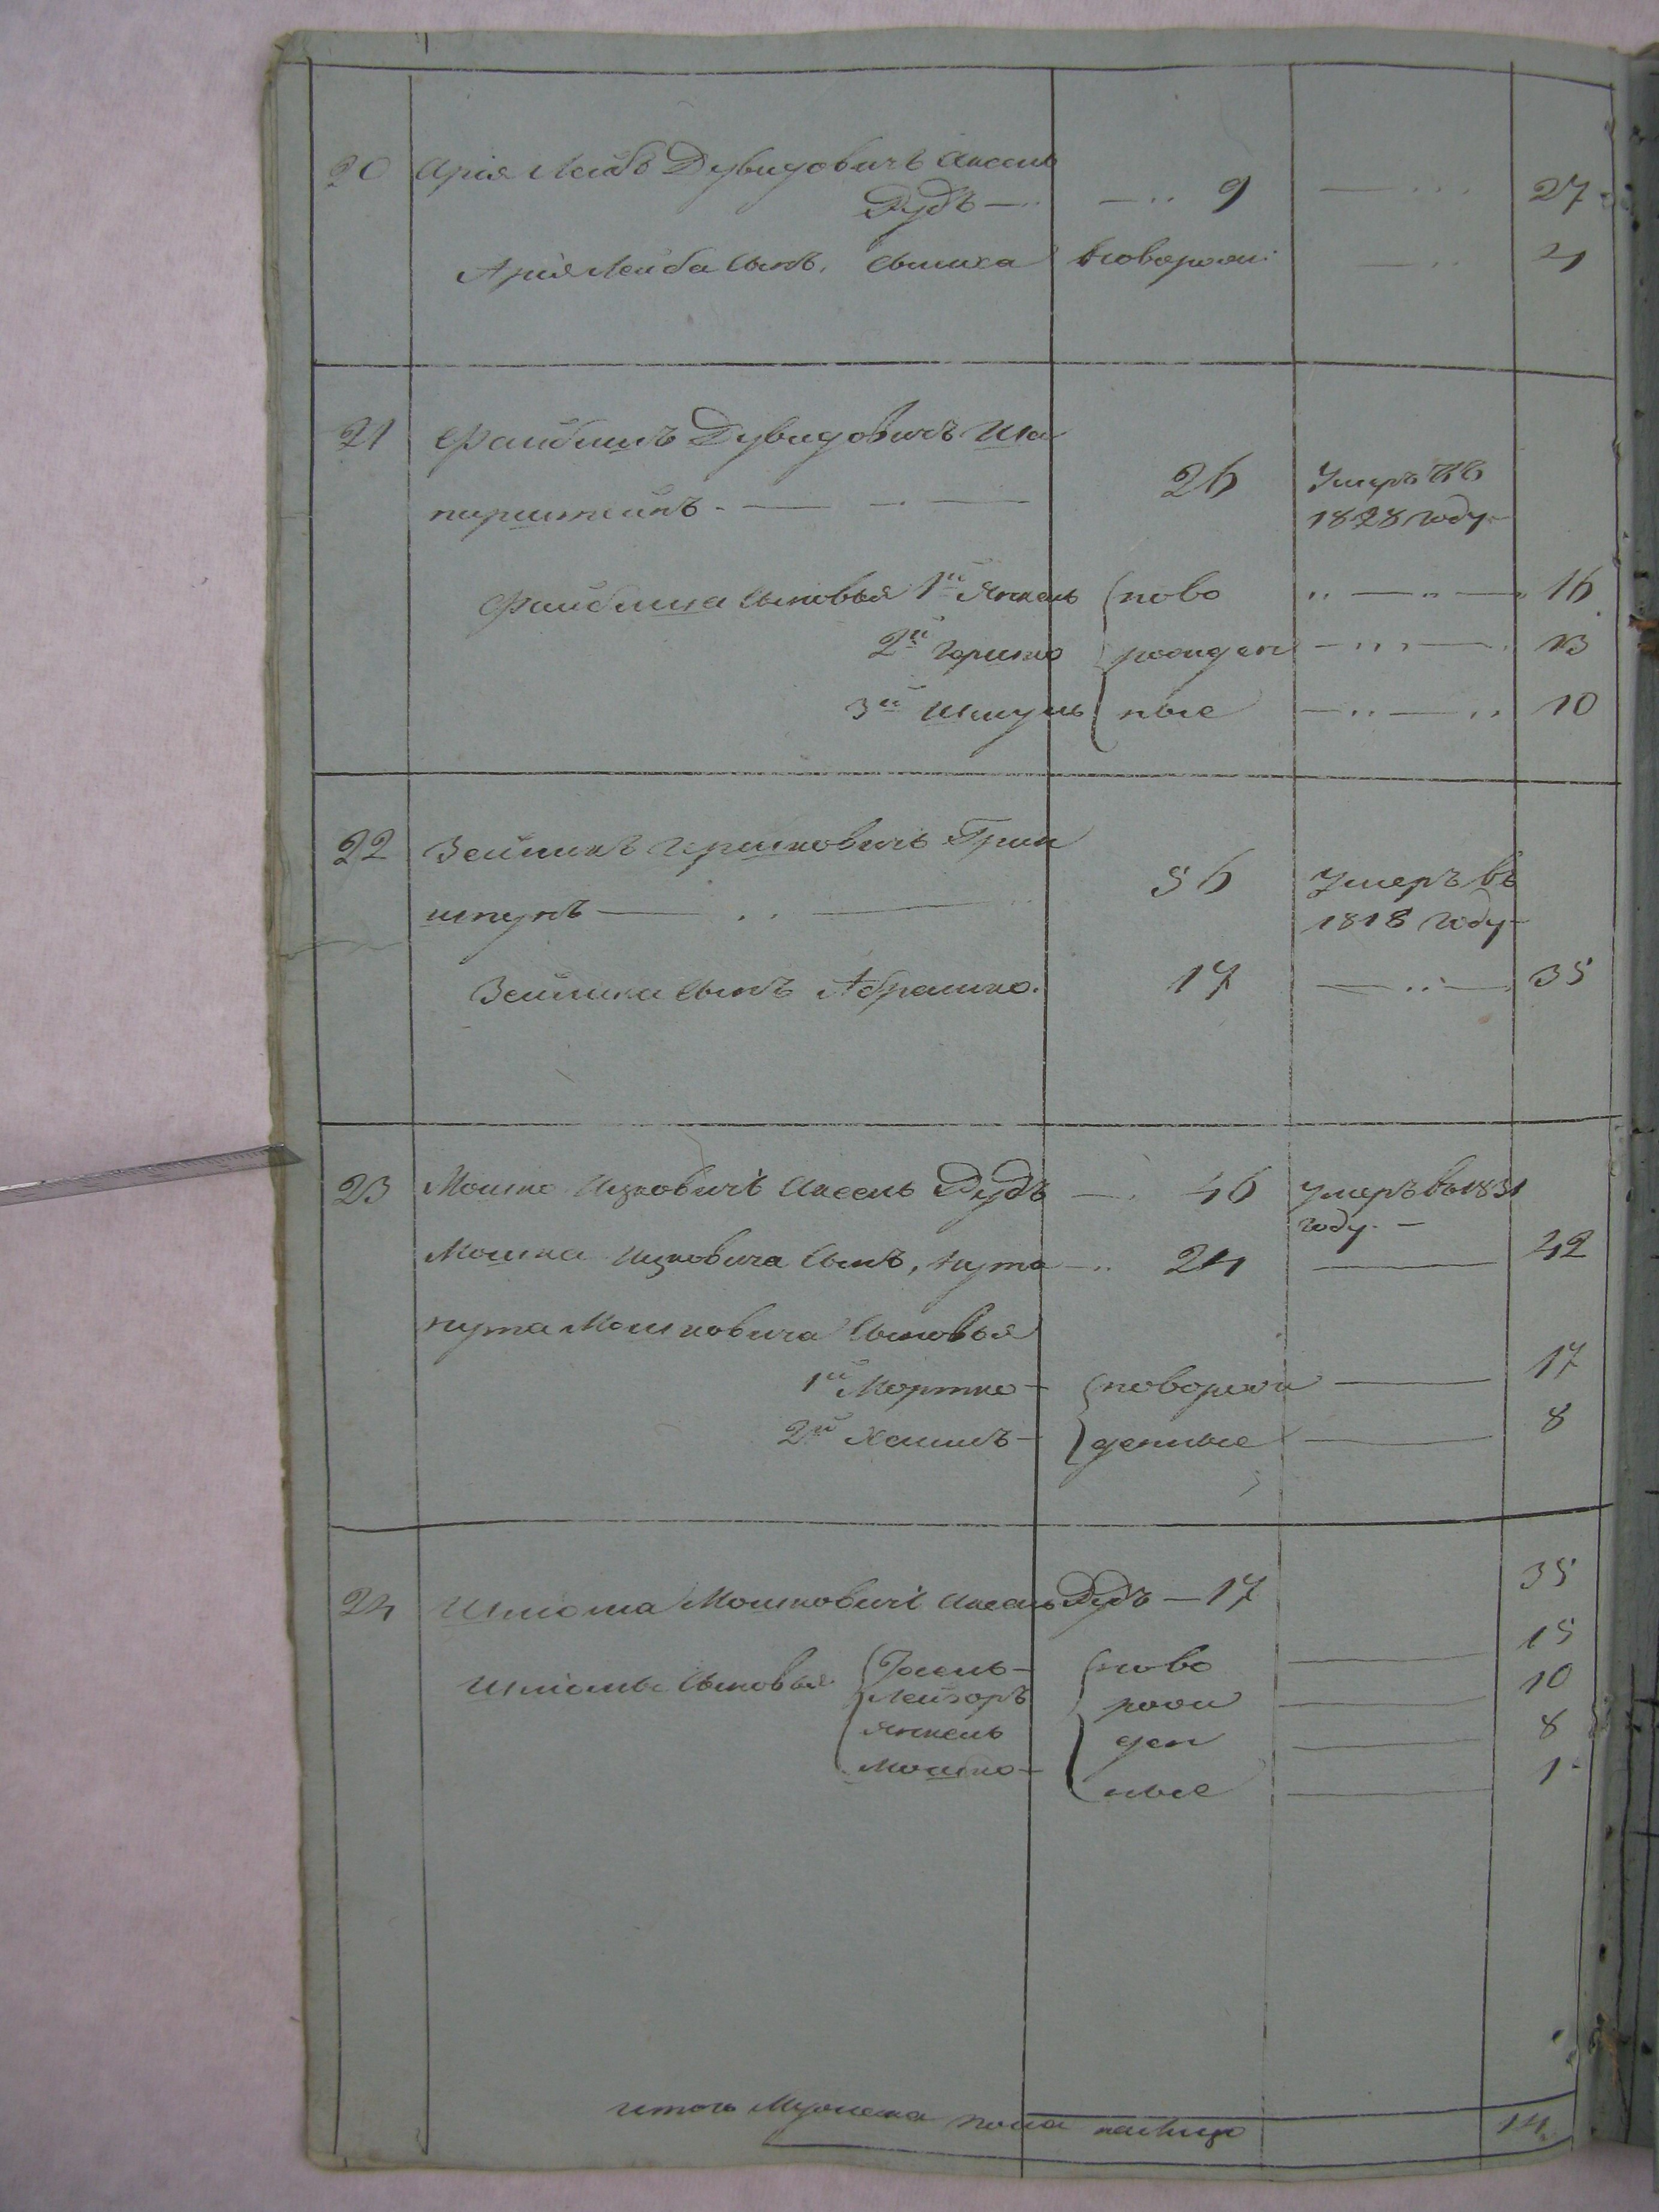 20 Арія Лейбъ Дувидовичъ Аксель
Дудъ — 9 — 27
Арія Лейба сынъ, Симха новорожд: — 4
21 Файбишъ Дувидовичъ Ша
пирштейнъ — 26 Умеръ въ
1828 году
Файбиша сыновья 1й Янкель ново — 16
2й Гершко рожден — 13
3й Шмуль ные — 10
22 Зейликъ Гершковичъ Грин
шпунъ — 56 Умеръ въ
1818 году
Зейлика сынъ Абрамко. 17 — 35
23 Мошко Ицковичъ Аксель Дудъ — 46 Умеръ въ 1831
году. —
Мошка Ицковича сынъ, Нута — 24 — 42
Нута Мошковича сыновья
1й Мортко — новорож — 17
2й Хаимъ — денные — 8
24 Шліома Мошковичъ Аксель Дудъ — 17 35
Шліомы сыновья Іосель — ново — 15
Лейзоръ рож — 10
Янкель ден — 8
Мошко — ные — 1
итого Мужеска пола на лицо 14